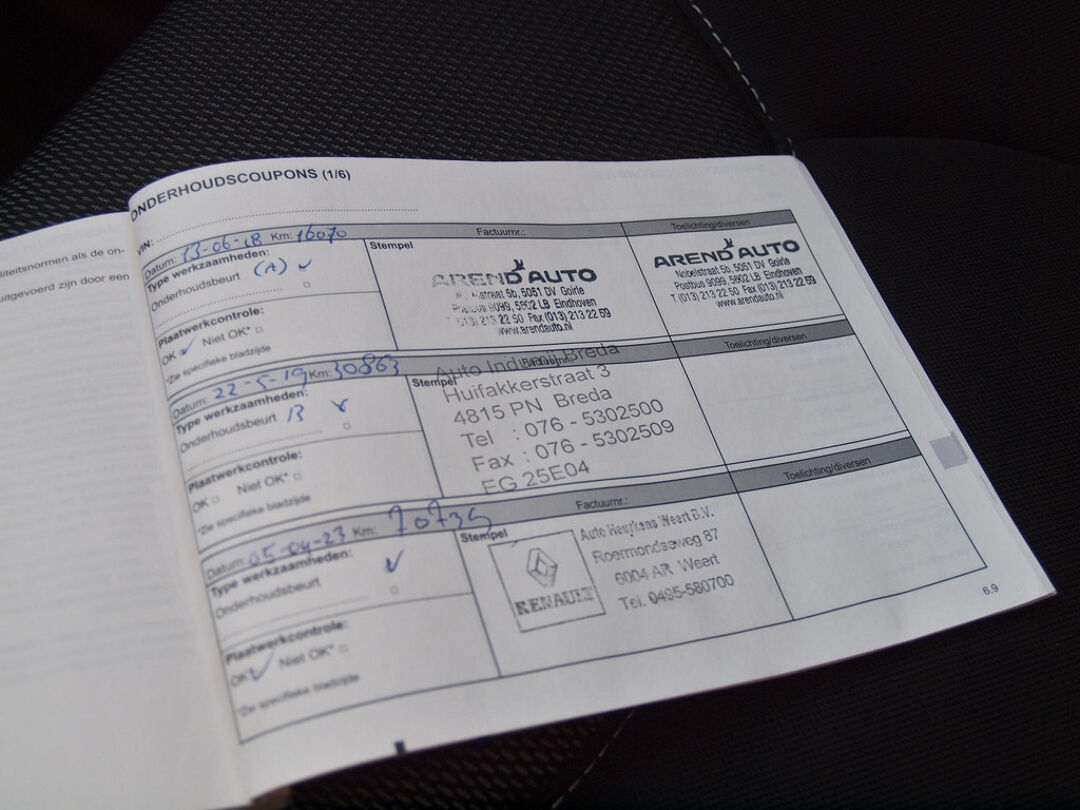 liteitsnormen als de on-
uitgevoerd zijn door een
ONDERHOUDSCOUPONS (1/6)
VIN:
Datum: 13-06-18 Km: 16070 Factuurnr.: Toelichting/diversen
Type werkzaamheden:
Onderhoudsbeurt (A) ✓
Plaatwerkcontrole:
OK ✓ Niet OK* □
*Zie specifieke bladzijde
Stempel
AREND AUTO
Nobelstraat 5b, 5051 DV Goirle
Postbus 9099, 5602 LB Eindhoven
T (013) 213 22 50 Fax (013) 213 22 59
www.arendauto.nl
AREND AUTO
Nobelstraat 5b, 5051 DV Goirle
Postbus 9099, 5602 LB Eindhoven
T (013) 213 22 50 Fax (013) 213 22 59
www.arendauto.nl
Datum: 22-5-19 Km: 30863 Factuurnr. Toelichting/diversen
Type werkzaamheden:
Onderhoudsbeurt B
Plaatwerkcontrole:
OK □ Niet OK* □
*Zie specifieke bladzijde
Stempel
Auto Breda
Huifakkerstraat 3
4815 PN Breda
Tel : 076 - 5302500
Fax : 076 - 5302509
EG 25E04
Datum: 05-04-23 Km: 70735 Factuurnr.: Toelichting/diversen
Type werkzaamheden: ✓
Onderhoudsbeurt □
Plaatwerkcontrole:
OK ✓ Niet OK* □
*Zie specifieke bladzijde
Stempel
RENAULT
Auto Weert B.V.
Roermondseweg 87
6004 AR Weert
Tel. 0495-580700
6.9